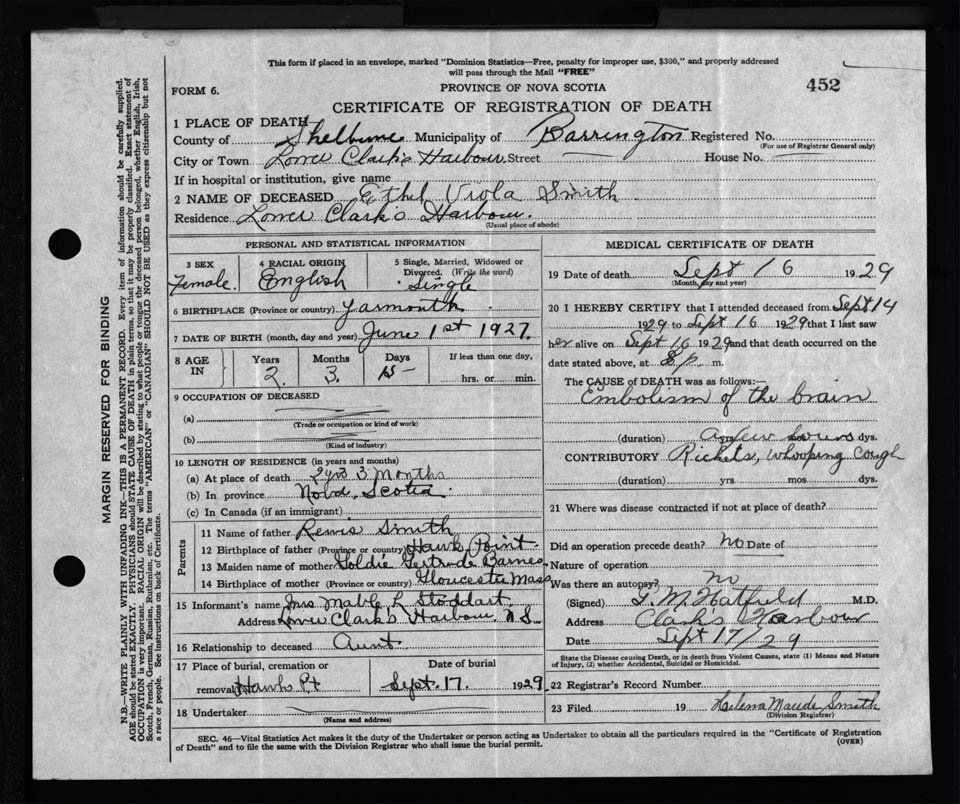 This form if placed in an envelope, marked "Dominion Statistics—Free, penalty for improper use, $300," and properly addressed
will pass through the Mail "FREE"
FORM 6. PROVINCE OF NOVA SCOTIA 452
CERTIFICATE OF REGISTRATION OF DEATH
1 PLACE OF DEATH
County of Shelburne Municipality of Barrington Registered No.
(For use of Registrar General only)
City or Town Lower Clark's Harbour Street House No.
If in hospital or institution, give name
2 NAME OF DECEASED Ethel Viola Smith
Residence Lower Clark's Harbour.
(Usual place of abode)
PERSONAL AND STATISTICAL INFORMATION
3 SEX
Female.
4 RACIAL ORIGIN
English
5 Single, Married, Widowed or
Divorced. (Write the word)
Single
6 BIRTHPLACE (Province or country) Yarmouth
7 DATE OF BIRTH (month, day and year) June 1st 1927.
8 AGE IN
Years 2. Months 3. Days 15
If less than one day,
hrs. or min.
9 OCCUPATION OF DECEASED
(a)
(Trade or occupation or kind of work)
(b)
(Kind of industry)
10 LENGTH OF RESIDENCE (in years and months)
(a) At place of death 2 yrs 3 Months
(b) In province Nova Scotia.
(c) In Canada (if an immigrant)
Parents
11 Name of father Smith
12 Birthplace of father (Province or country) Hawk Point
13 Maiden name of mother Goldie Gertrude Barnes
14 Birthplace of mother (Province or country) Gloucester Mass
15 Informant's name Mrs Mable L Stoddart
Address Lower Clark's Harbour N S
16 Relationship to deceased Aunt
17 Place of burial, cremation or
removal Hawk Pt
Date of burial
Sept. 17. 1929
18 Undertaker
(Name and address)
MEDICAL CERTIFICATE OF DEATH
19 Date of death Sept 16 1929
(Month, day and year)
20 I HEREBY CERTIFY that I attended deceased from Sept 14
1929 to Sept 16 1929 that I last saw
her alive on Sept 16 1929 and that death occurred on the
date stated above, at 8 p. m.
The CAUSE of DEATH was as follows:—
Embolism of the brain
(duration) a few hours dys.
CONTRIBUTORY Rickets, Whooping Cough
(duration) yrs mos dys.
21 Where was disease contracted if not at place of death?
Did an operation precede death? no Date of
Nature of operation
Was there an autopsy? no
(Signed) Hatfield M.D.
Address Clark's Harbour
Date Sept 17/29
State the Disease causing Death, or in death from Violent Causes, state (1) Means and Nature
of Injury, (2) whether Accidental, Suicidal or Homicidal.
22 Registrar's Record Number
23 Filed 19 Helena Maude Smith
(Division Registrar)
SEC. 46—Vital Statistics Act makes it the duty of the Undertaker or person acting as Undertaker to obtain all the particulars required in the "Certificate of Registration
of Death" and to file the same with the Division Registrar who shall issue the burial permit.
(OVER)
MARGIN RESERVED FOR BINDING
N.B.—WRITE PLAINLY WITH UNFADING INK—THIS IS A PERMANENT RECORD. Every item of information should be carefully supplied.
AGE should be stated EXACTLY. PHYSICIANS should STATE CAUSE OF DEATH in plain terms, so that it may be properly classified. Exact statement of
OCCUPATION is very important. RACIAL ORIGIN will be described by stating to what people or tongue the deceased person belonged, whether English, Irish,
Scotch, French, German, Russian, Ruthenian, etc. The terms "AMERICAN" or "CANADIAN" SHOULD NOT BE USED as they express citizenship but not
a race or people. See instructions on back of Certificate.